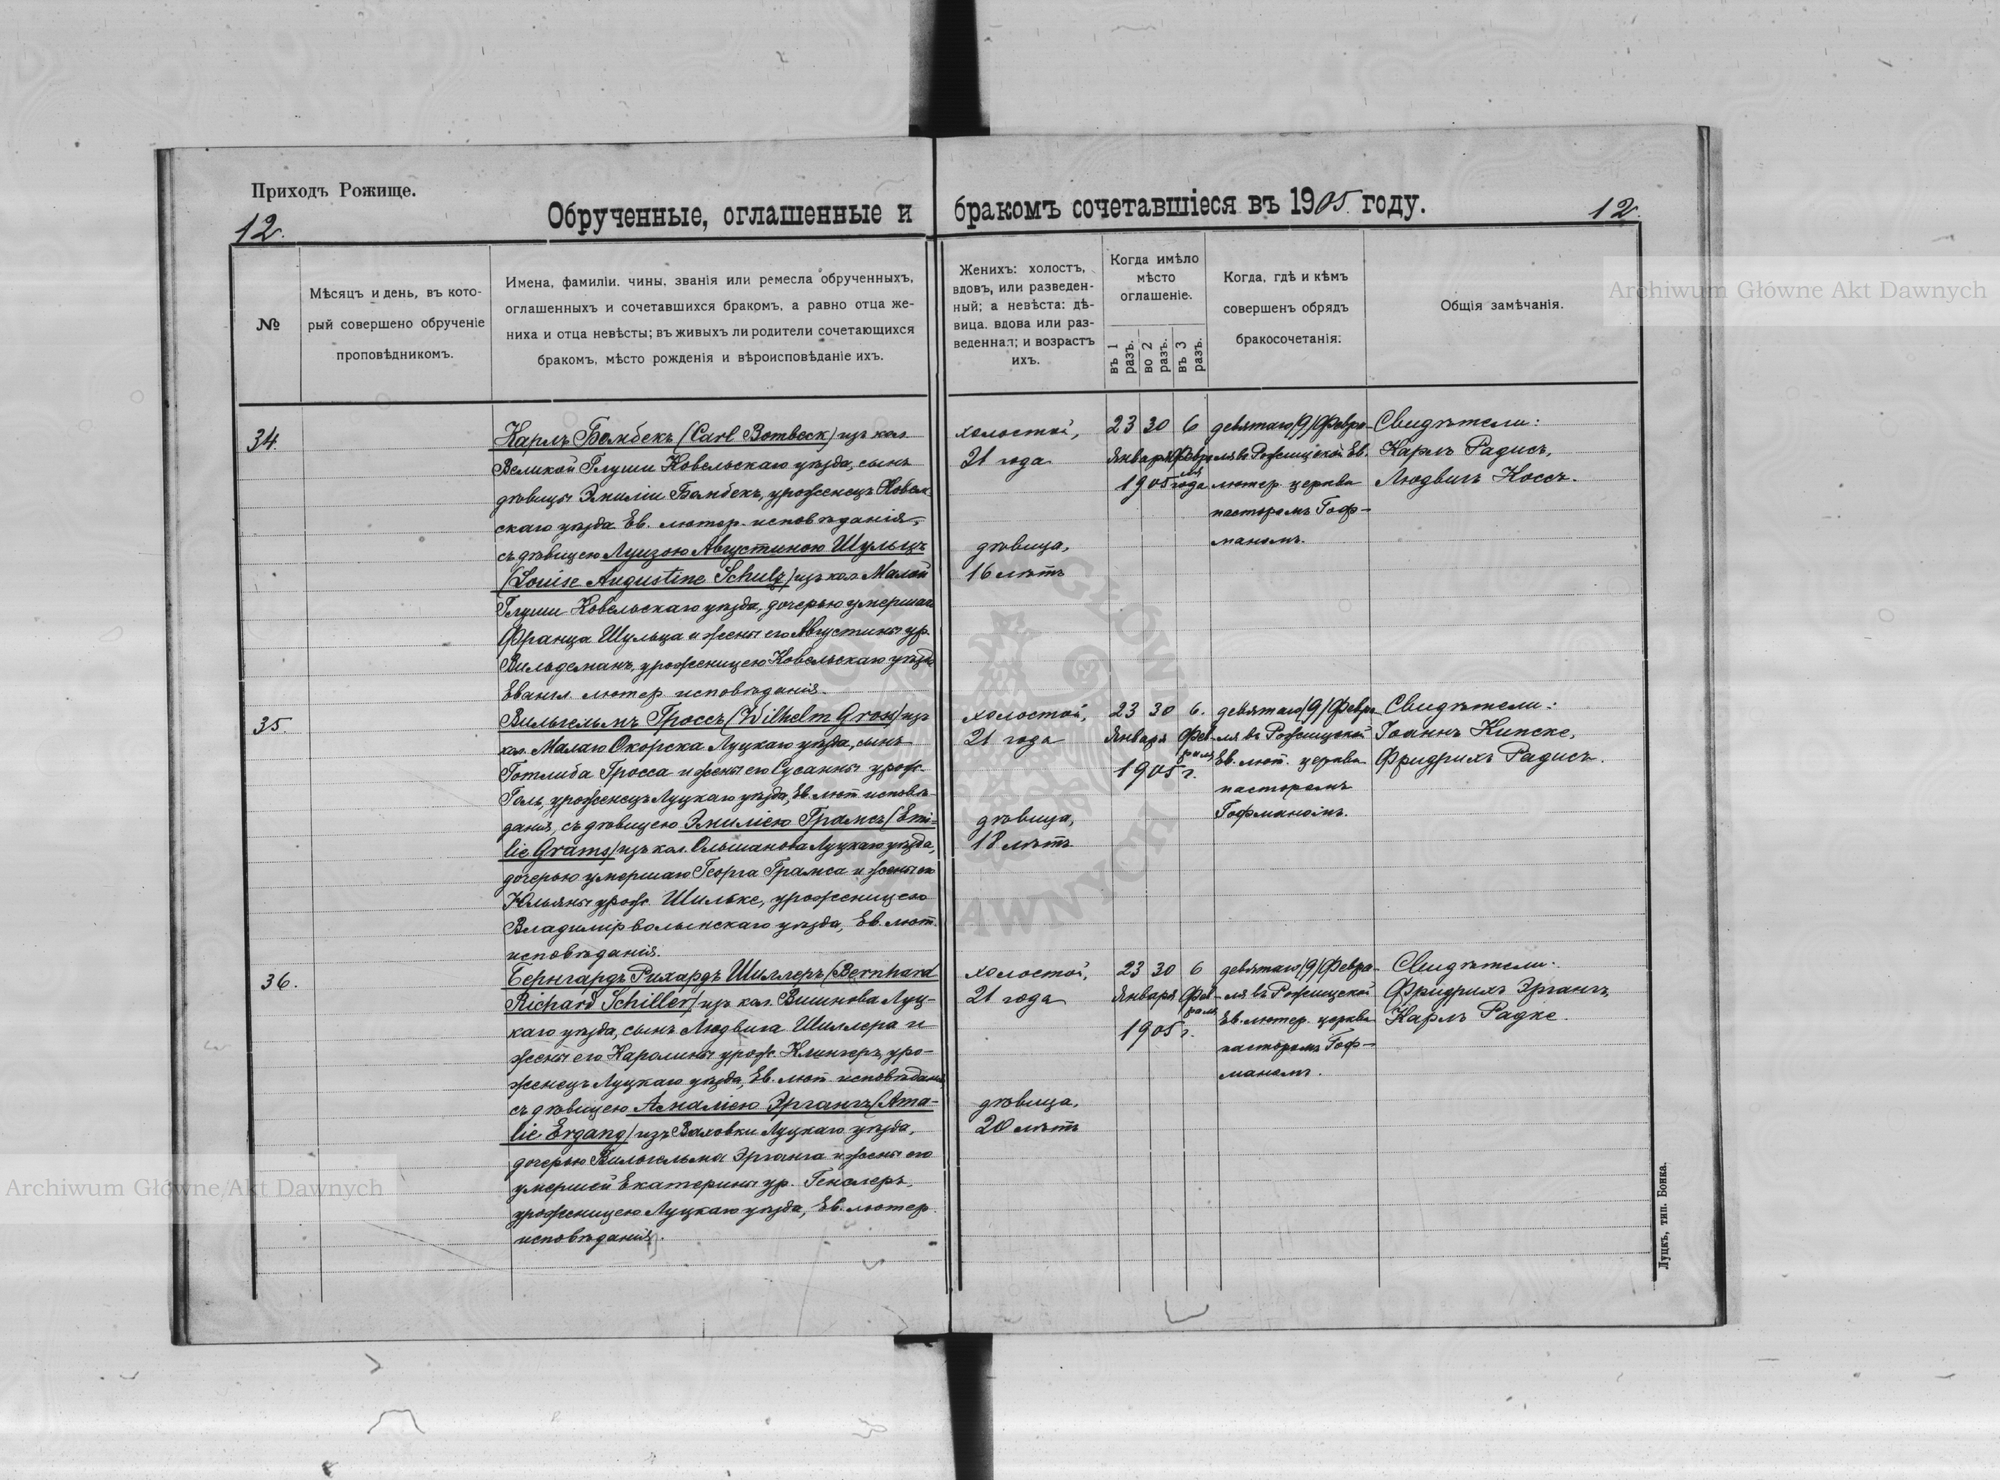 Приходъ Рожище.
12.
Обрученные, оглашенные и бракомъ сочетавшіеся въ 1905. году.
12.
№
Мѣсяцъ и день, въ кото-
рый совершено обрученіе
проповѣдникомъ.
Имена, фамиліи, чины, званія или ремесла обрученныхъ,
оглашенныхъ и сочетавшихся бракомъ, а равно отца же-
ниха и отца невѣсты; въ живыхъ ли родители сочетающихся
бракомъ, мѣсто рожденія и вѣроисповѣданіе ихъ.
Женихъ: холостъ,
вдовъ, или разведен-
ный; а невѣста: дѣ-
вица, вдова или раз-
веденная; и возрастъ
ихъ.
Когда имѣло
мѣсто
оглашеніе.
въ 1 разъ.
во 2 разъ.
въ 3 разъ.
Когда, гдѣ и кѣмъ
совершенъ обрядъ
бракосочетанія:
Общія замѣчанія.
34.
Карлъ Бомбекъ (Carl Bombeck) изъ кол.
Великой Глуши Ковельскаго уѣзда, сынъ
дѣвицы Эмиліи Бомбекъ, уроженецъ Ковель-
скаго уѣзда Ев. лютер. исповѣданія,
съ дѣвицею Луизою Августиною Шульцъ
(Louise Augustine Schulz) изъ кол. Малой
Глуши Ковельскаго уѣзда, дочерью умершаго
Франца Шульца и жены его Августины ур.
Вильдеманъ, уроженицею Ковельскаго уѣзда
Евангл. лютер. исповѣданія.
холостой,
21 года
дѣвица,
16 лѣтъ
23 30 6
Января Февраля
1905 года
девятаго (9) Февра-
ля въ Рожищской Ев.
лютер. церкви
пасторомъ Гоф-
маномъ.
Свидѣтели:
Карлъ Радисъ,
Людвигъ Коссъ.
35.
Вильгельмъ Гроссъ (Wilhelm Gross) изъ
кол. Малаго Окорска Луцкаго уѣзда, сынъ
Готлиба Гросса и жены его Сусанны урож.
Голь, уроженецъ Луцкаго уѣзда, Ев. лют. исповѣ-
данія, съ дѣвицею Эмиліею Грамсъ (Emi-
lie Grams) изъ кол. Ольшанова Луцкаго уѣзда,
дочерью умершаго Георга Грамса и жены его
Юльяны урож. Шильке, уроженицею
Владимірволынскаго уѣзда, Ев. лют.
исповѣданія.
холостой,
21 года
дѣвица,
18 лѣтъ
23 30 6.
Января Февраля
1905 г.
девятаго (9) Февра-
ля въ Рожищской
Ев. лют. церкви
пасторомъ
Гофманомъ.
Свидѣтели:
Іоаннъ Кипске,
Фридрихъ Радисъ.
36.
Бернгардъ Рихардъ Шиллеръ (Bernhard
Richard Schiller) изъ кол. Вишнова Луц-
каго уѣзда, сынъ Людвига Шиллера и
жены его Каролины урож. Клингеръ, уро-
женецъ Луцкаго уѣзда, Ев. лют. исповѣданія,
съ дѣвицею Амаліею Эргангъ (Ama-
lie Ergang) изъ Ваховки Луцкаго уѣзда,
дочерью Вильгельма Эрганга и жены его
умершей Екатерины ур. Генслеръ,
уроженицею Луцкаго уѣзда, Ев. лютер.
исповѣданія.
холостой,
21 года
дѣвица,
20 лѣтъ
23 30 6
Января Февраля
1905 г.
девятаго (9) Февра-
ля въ Рожищской
Ев. лютер. церкви
пасторомъ Гоф-
маномъ.
Свидѣтели:
Фридрихъ Эргангъ,
Карлъ Радке.
Луцкъ, тип. Бонка.
Archiwum Główne Akt Dawnych
Archiwum Główne Akt Dawnych